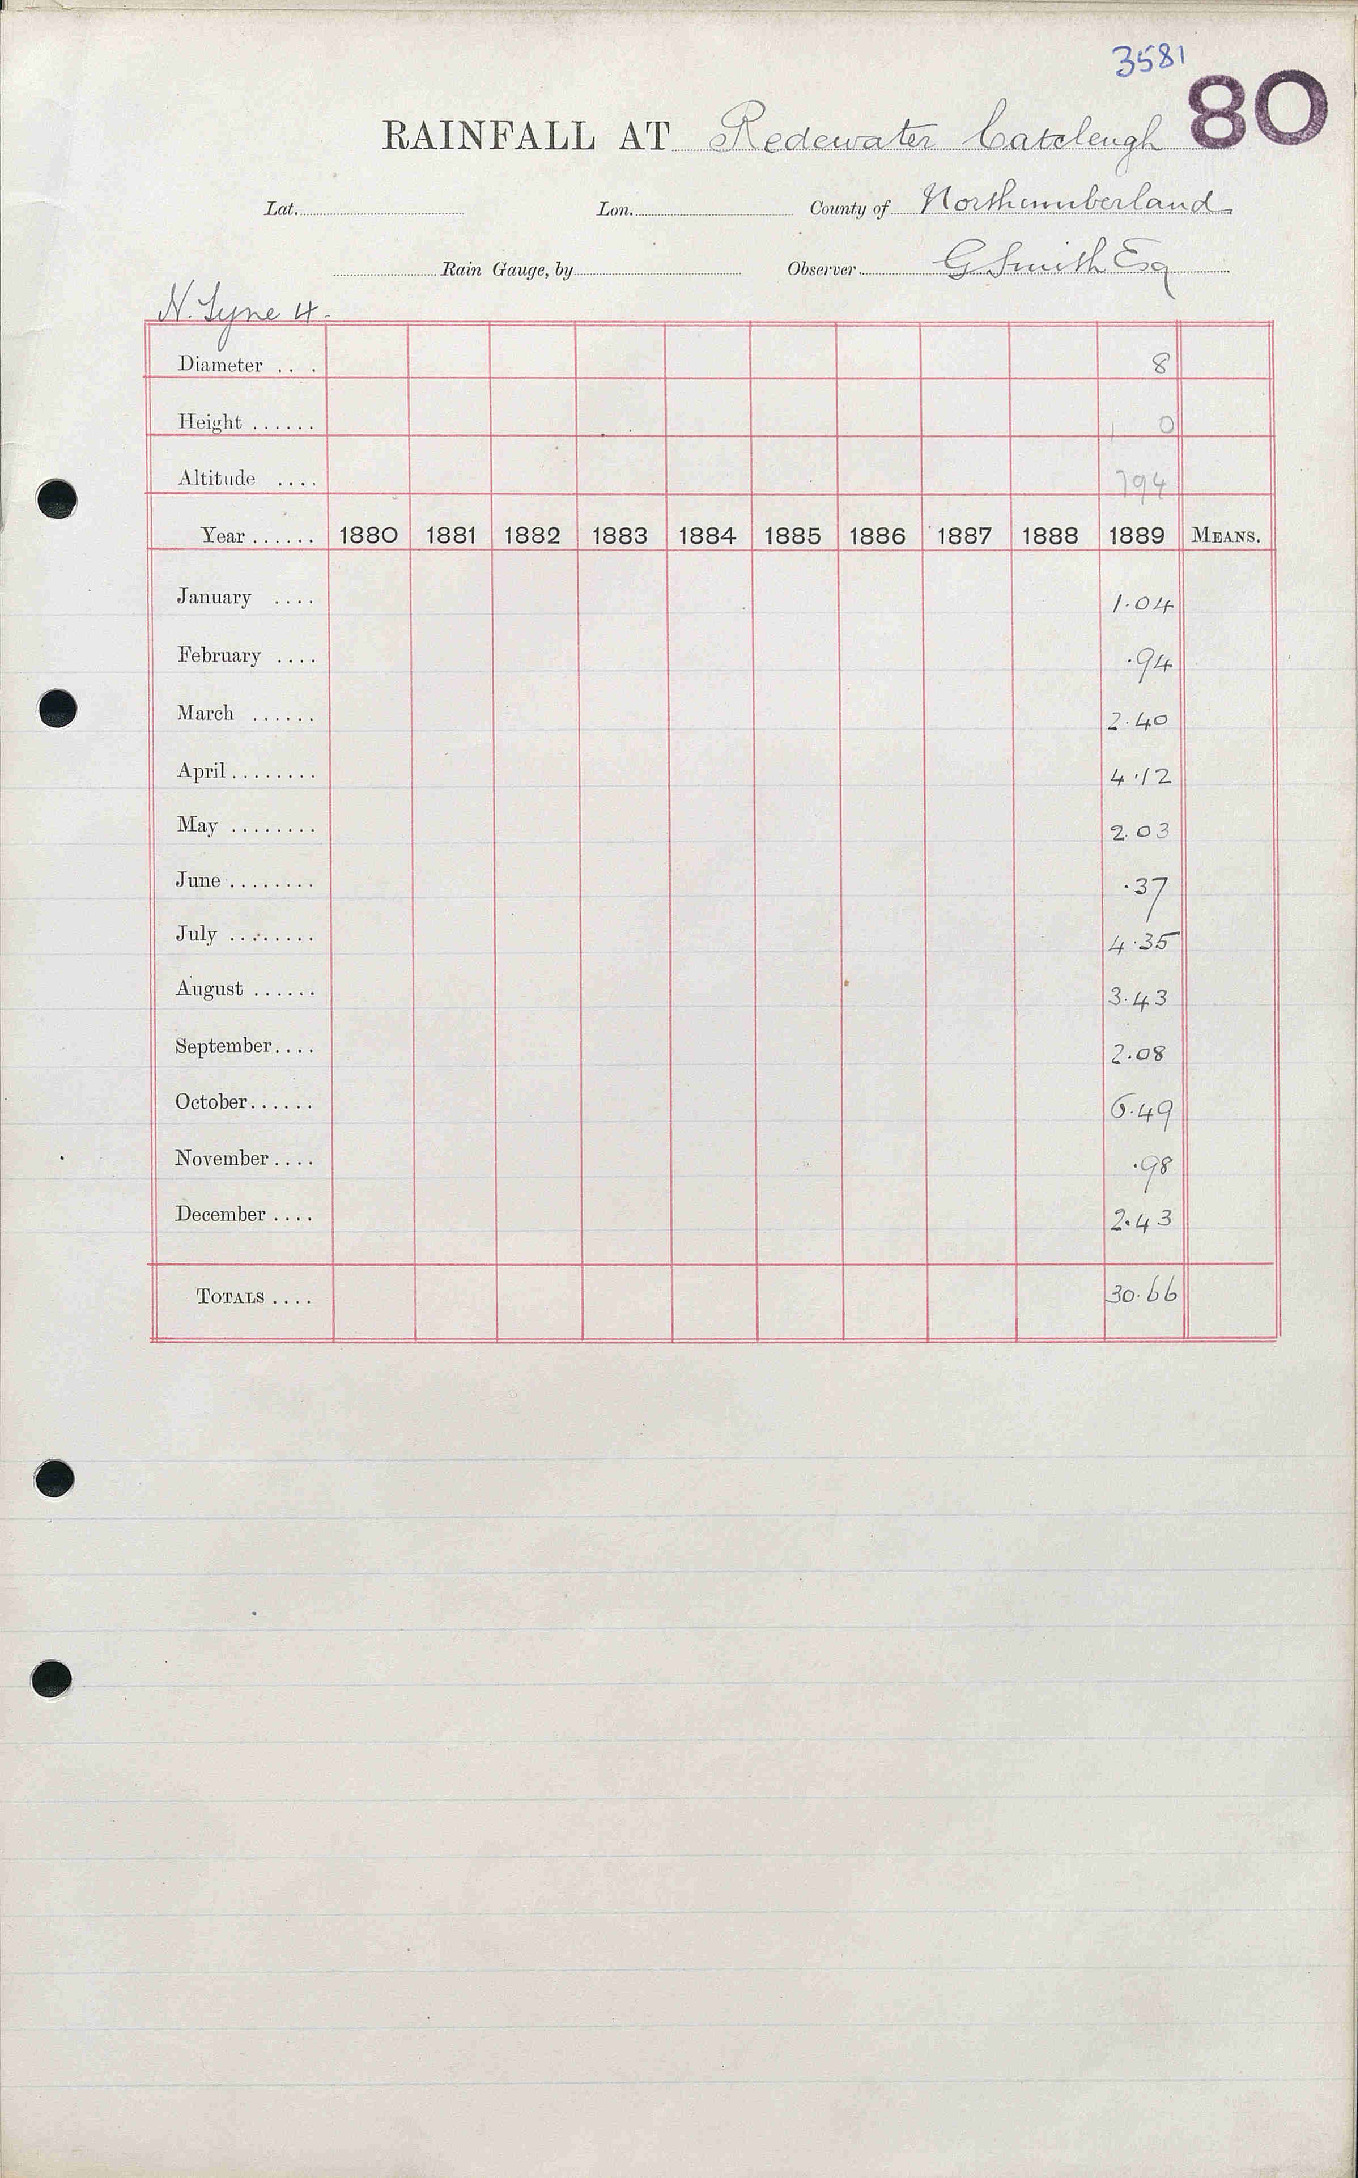 3581
80
RAINFALL AT Redewater Catcleugh
Lat. Lon. County of Northumberland
Rain Gauge, by Observer G Smith Esq
N. Tyne 4.
Diameter .... 8
Height ...... 1 0
Altitude .... 794
Year ...... 1880 1881 1882 1883 1884 1885 1886 1887 1888 1889 MEANS.
January .... 1.04
February .... .94
March ...... 2.40
April ........ 4.12
May ........ 2.03
June ........ .37
July ........ 4.35
August ...... 3.43
September .... 2.08
October ...... 6.49
November .... .98
December .... 2.43
TOTALS .... 30.66